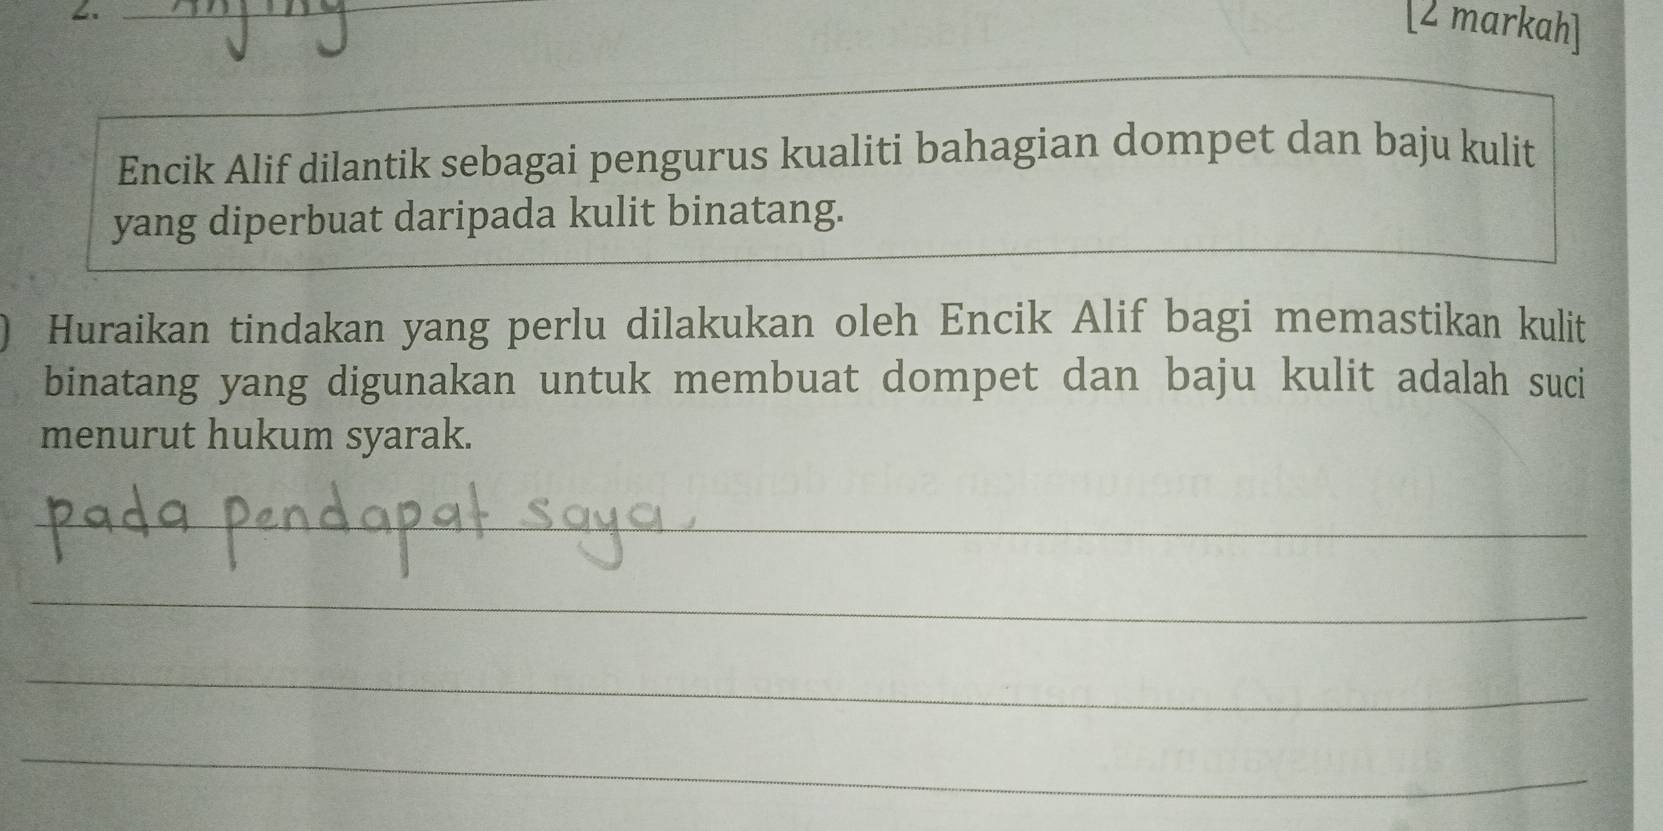 2. Anjing
[2 markah]
Encik Alif dilantik sebagai pengurus kualiti bahagian dompet dan baju kulit
yang diperbuat daripada kulit binatang.
) Huraikan tindakan yang perlu dilakukan oleh Encik Alif bagi memastikan kulit
binatang yang digunakan untuk membuat dompet dan baju kulit adalah suci
menurut hukum syarak.
pada pendapat saya,